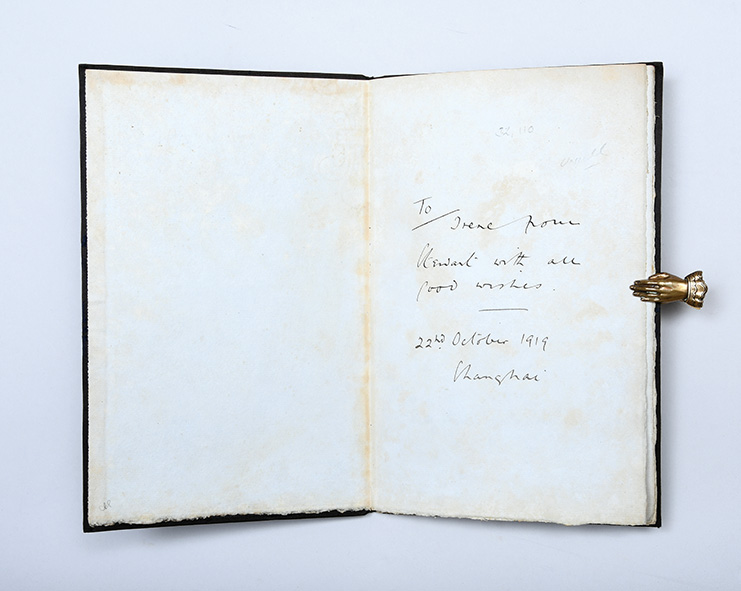 To
Irene from
Stewart with all
good wishes.
22nd October 1919
Shanghai